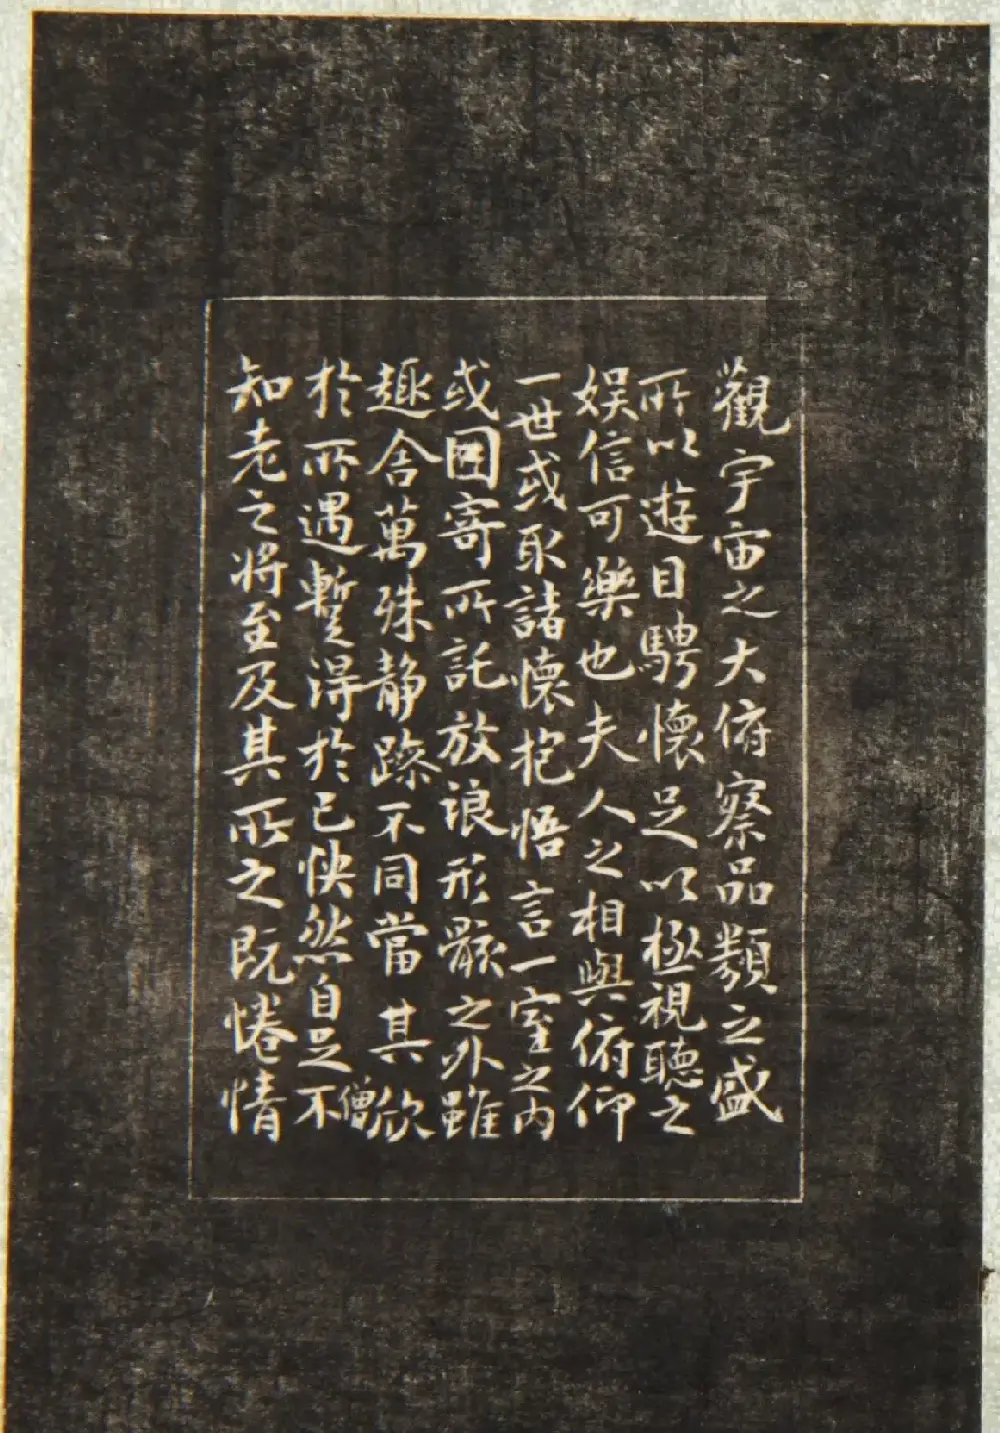 觀宇宙之大俯察品類之盛
所以遊目騁懷足以極視聽之
娛信可樂也夫人之相與俯仰
一世或取諸懷抱悟言一室之內
或因寄所託放浪形骸之外雖
趣舍萬殊静躁不同當其欣
僧
於所遇暫得於己快然自足不
知老之將至及其所之既惓情